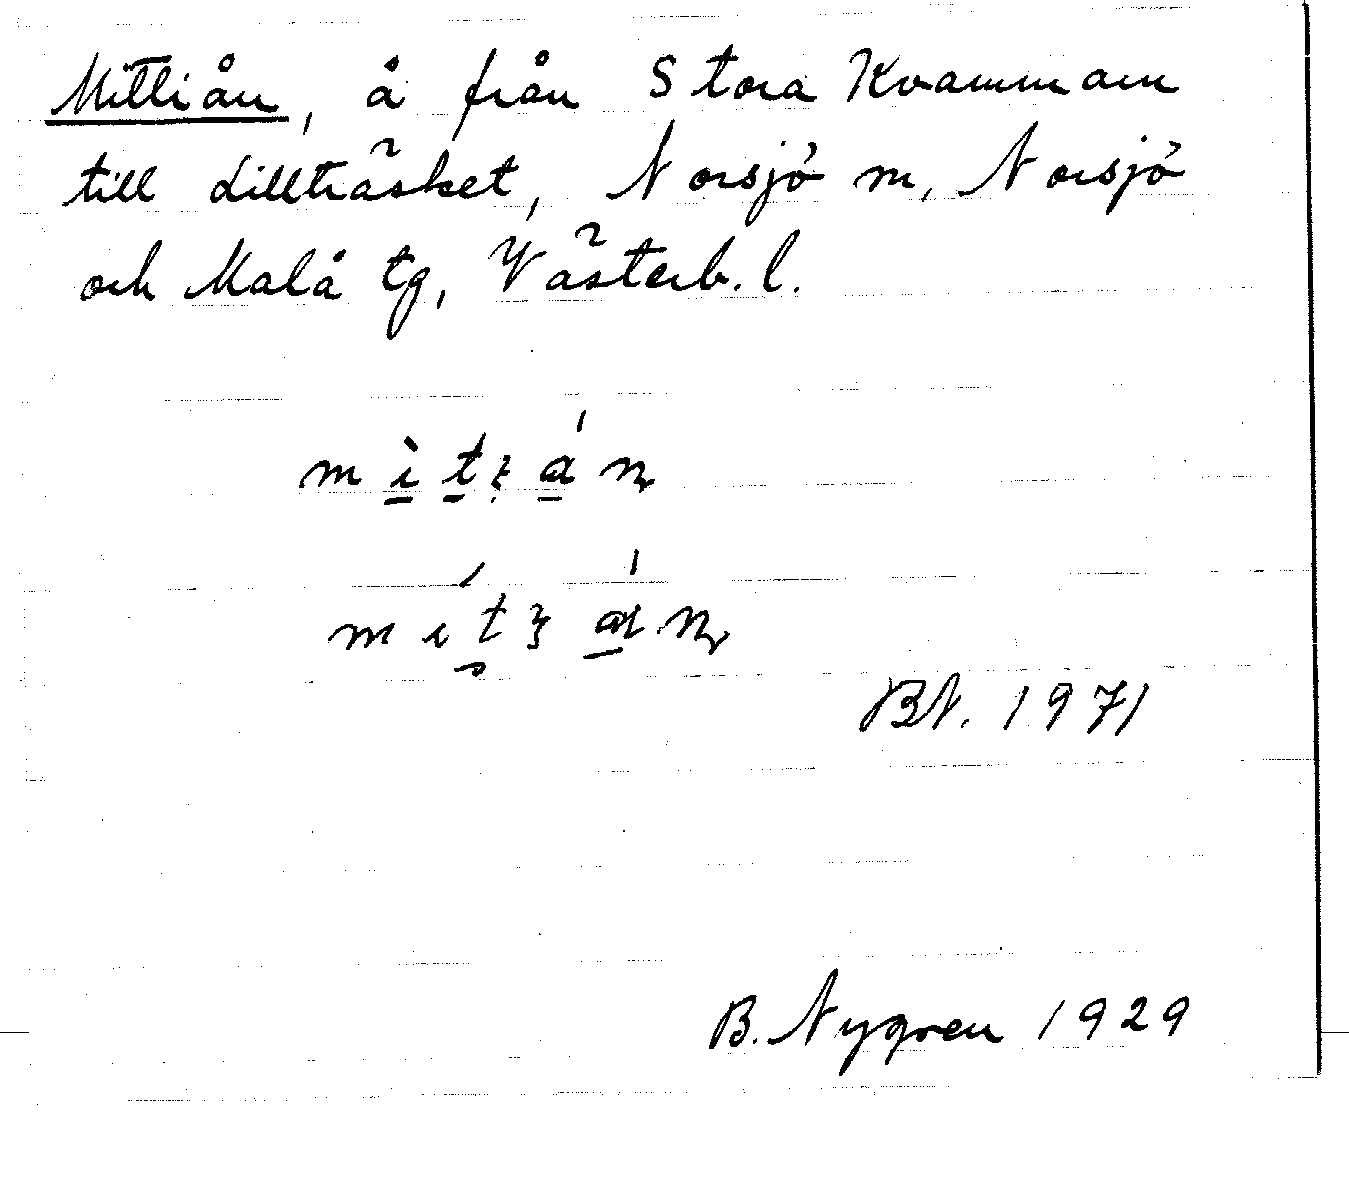 Mittiån, å från Stora Kvammarn
till Lillträsket, Norsjö m, Norsjö
och Malå tg, Västerb. l.
BN. 1971
B. Nygren 1929